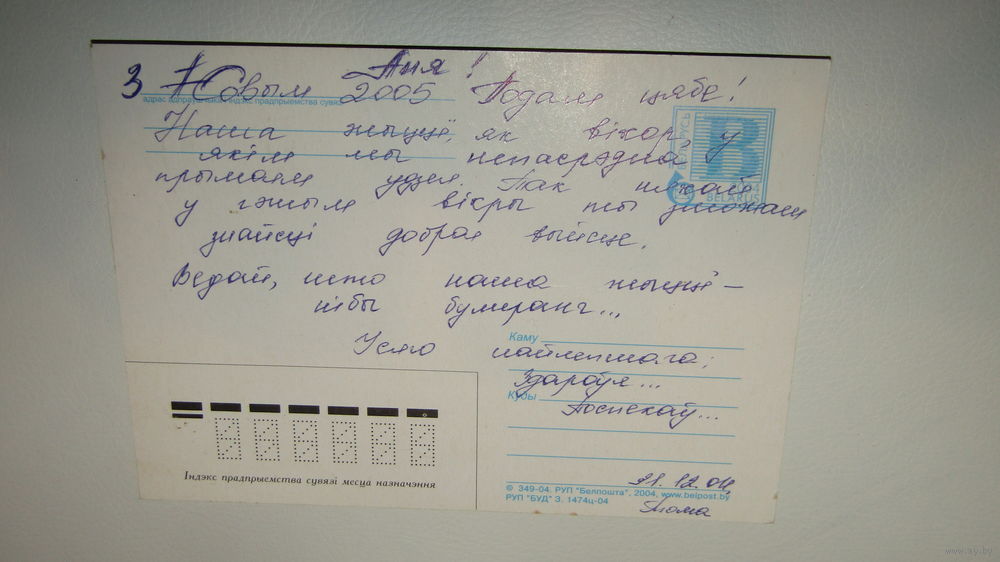 Аня!
З Новым 2005 Годам цябе!
адрас адпраўшчыка, індэкс прадпрыемства сувязі
Наша жыццё, як віхор, у
якім мы непасрэдна
прымаем удзел. Так няхай
у гэтым віхры ты зможаш
знайсці добрае выйсце.
Ведай, што наша жыццё –
нібы бумеранг...
Усяго найлепшага;
Здароўя...
Поспехаў...
BELARUS
Каму
Куды
Індэкс прадпрыемства сувязі месца назначэння
21.12.04
© 349-04. РУП "Белпошта", 2004, www.belpost.by
РУП "БУД" З. 1474ц-04
Тома
www.ay.by